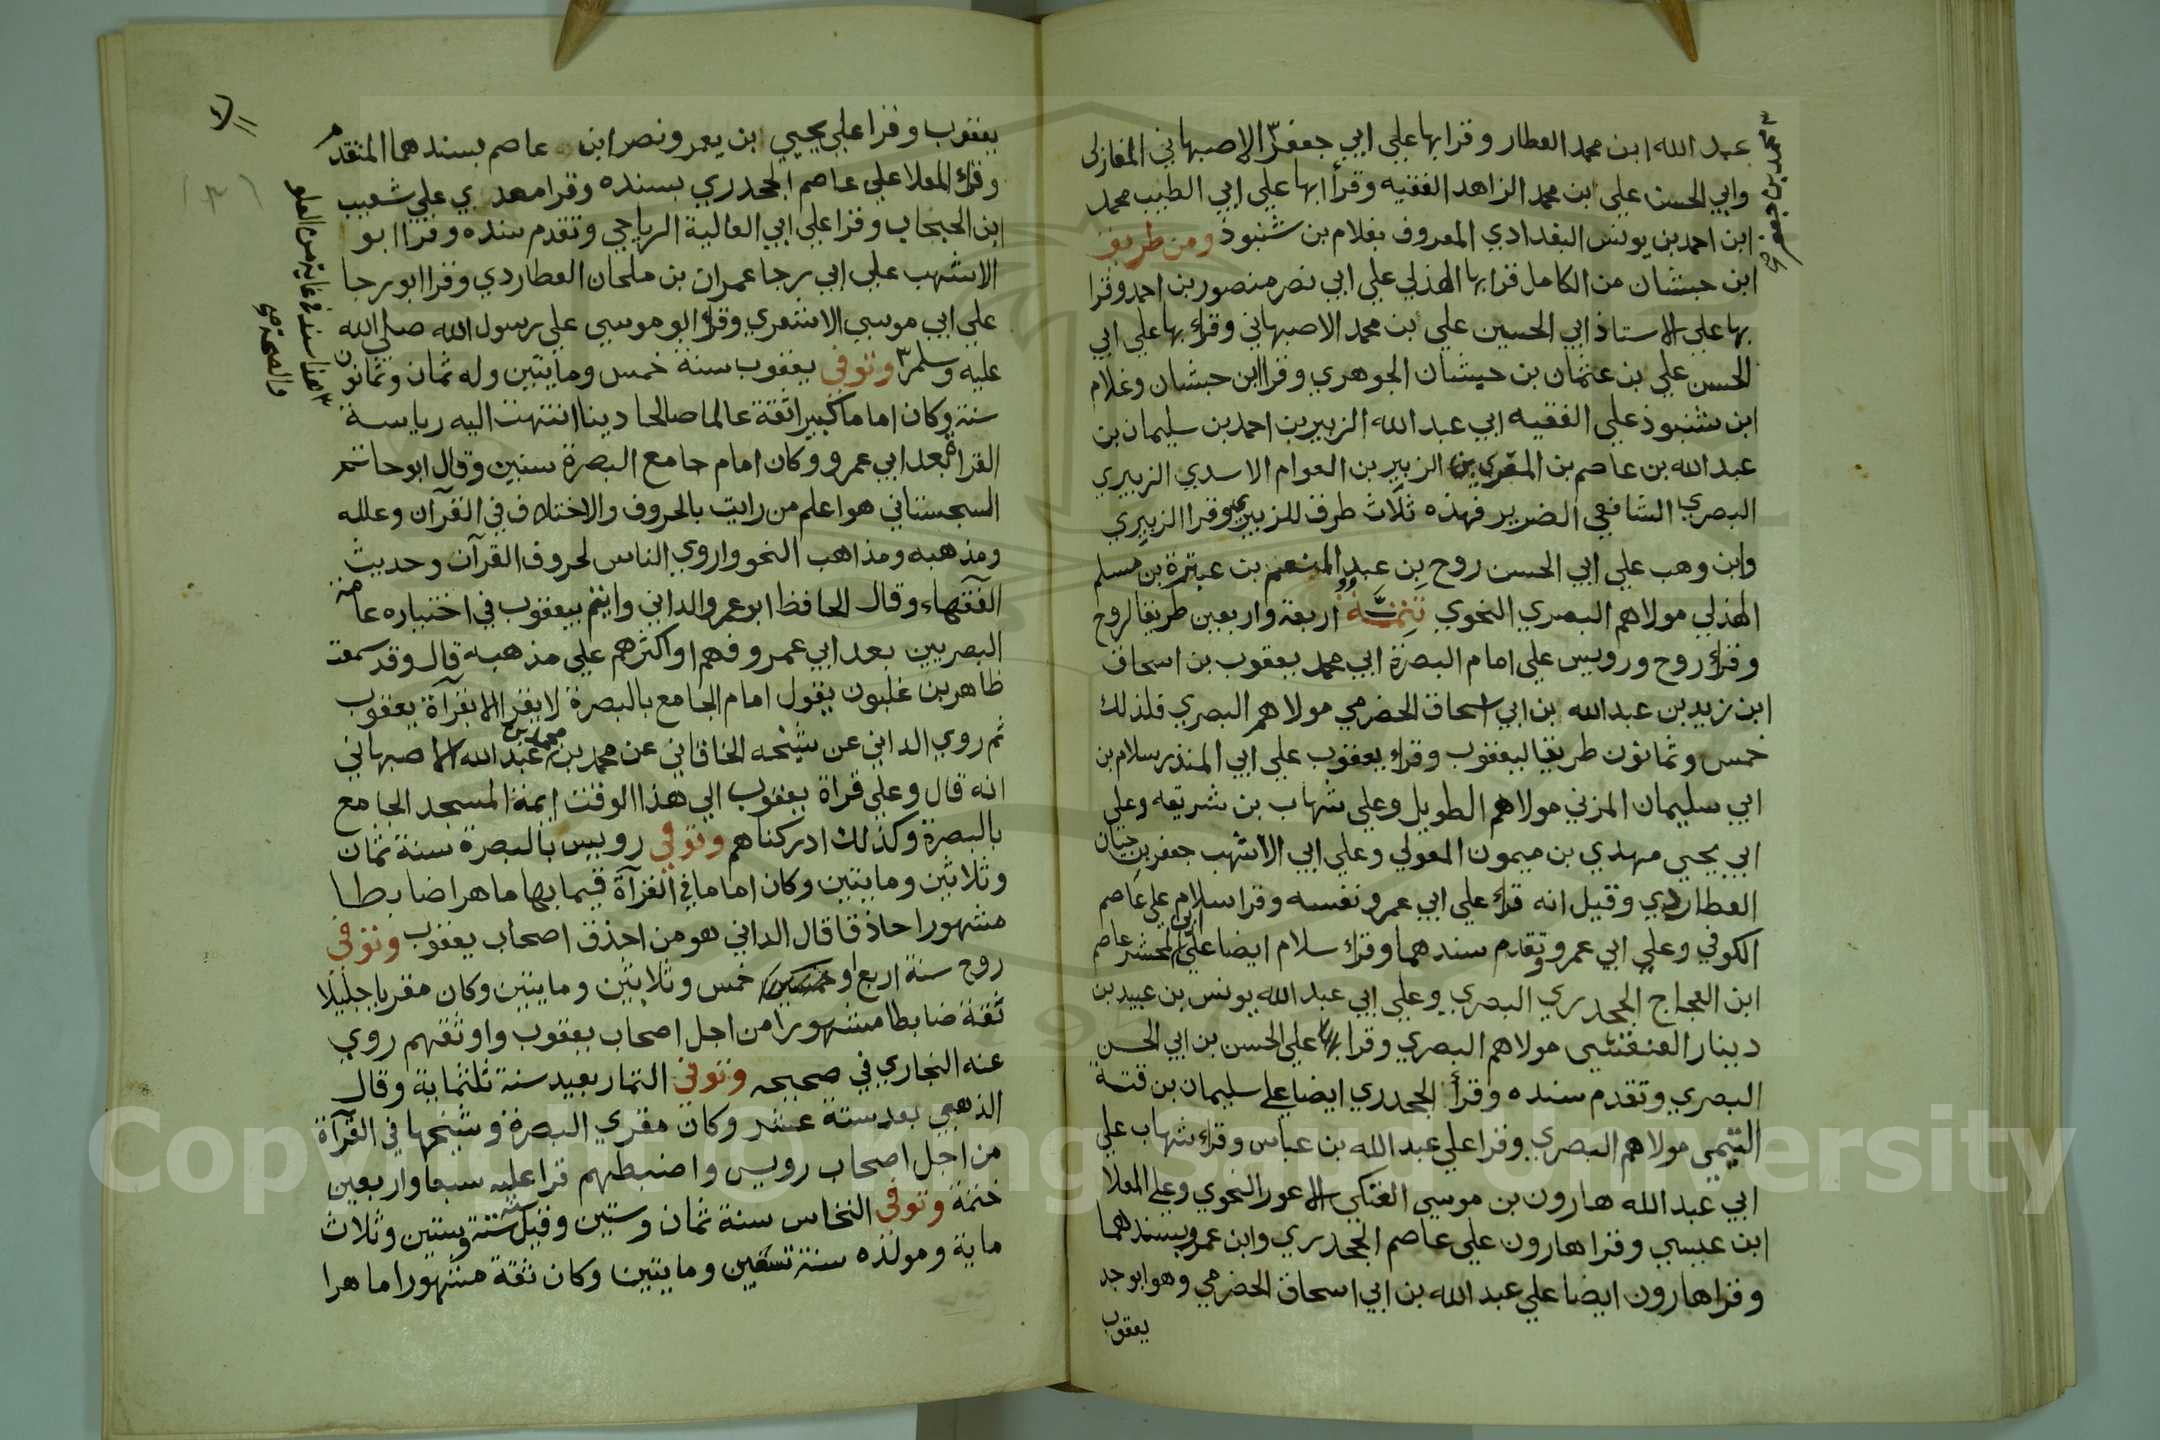 عبد الله ابن محمد العطار وقرا بها علي ابي جعفر الاصبهاني المغازلي
محمد بن جعفر صح
وابي الحسن علي ابن محمد الزاهد الفقيه وقرأ ابها علي ابي الطيب محمد
ابن احمد بن يونس البغدادي المعروف بغلام بن شنبوذ ومن طريق
ابن حبشان من الكامل قرا بها الهذلي علي ابي نصر منصور بن احمد وقرا
بها علي الاستاذ ابي الحسين علي بن محمد الاصبهاني وقرا بها علي ابي
الحسن علي بن عثمان بن حبشان الجوهري وقرا ابن حبشان وغلام
ابن شنبوذ علي الفقيه ابي عبد الله الزبير بن احمد بن سليمان بن
عبد الله بن عاصم بن المنذر بن الزبير بن العوام الاسدي الزبيري
البصري الشافعي الضرير فهذه ثلاث طرق للزبيري وقرا الزبيري
وابن وهب علي ابي الحسن روح بن عبد المنعم بن عبدة بن مسلم
الهذلي مولاهم البصري النحوي تتمة اربعة واربعين طريقا لروح
وقرا روح ورويس علي امام البصرة ابي محمد يعقوب بن اسحاق
ابن زيد بن عبد الله بن ابي اسحاق الحضرمي مولاهم البصري فلذلك
خمس وثمانون طريقا ليعقوب وقرا يعقوب علي ابي المنذر سلام بن
ابي سليمان المزني مولاهم الطويل وعلي شهاب بن شريفه وعلي
ابي يحيي مهدي بن ميمون المعولي وعلي ابي الاشهب جعفر بن حيان
العطاردي وقيل انه قرا علي ابي عمرو نفسه وقرا سلام علي عاصم
الكوفي وعلي ابي عمرو وتقدم سندهما وقرا سلام ايضا علي ابي المجشر عاصم
ابن العجاج الجحدري البصري وعلي ابي عبد الله يونس بن عبيد بن
دينار العنقشي مولاهم البصري وقرا بها علي الحسن بن ابي الحسن
البصري وتقدم سنده وقرأ الجحدري ايضا علي سليمان بن قتة
التيمي مولاهم البصري وقرا علي عبد الله بن عباس وقرا شهاب علي
ابي عبد الله هارون بن موسي العتكي الاعور النحوي وعلي المعلا
ابن عيسي وقرا هارون علي عاصم الجحدري وابن عمرو بسندهما
وقرا هارون ايضا علي عبد الله بن ابي اسحاق الحضرمي وهو ابو جد
يعقوب
يعقوب وقرا علي يحيي ابن يعمر ونصر ابن عاصم بسندهما المتقدم
وقرا المعلا علي عاصم الجحدري بسنده وقرا مهدي علي شعيب
ابن الحبحاب وقرا علي ابي العالية الرياحي وتقدم سنده وقرا ابو
الاشهب علي ابي رجا عمران بن ملحان العطاردي وقرا ابو رجا
علي ابي موسي الاشعري وقرا ابو موسي علي رسول الله صلي الله
عليه وسلم وتوفي يعقوب سنة خمس ومايتين وله ثمان وثمانون
هذا سند في غاية من العلو
والصحة صح
سنة وكان اماما كبيرا ثقة عالما صالحا دينا انتهت اليه رياسة
القراة بعد ابي عمرو وكان امام جامع البصرة سنين وقال ابو حاتم
السجستاني هو اعلم من رايت بالحروف والاختلاف في القرآن وعلله
ومذهبه ومذاهب النحو واروي الناس لحروف القرآن وحديث
الفقهاء وقال الحافظ ابو عمرو الداني وايتم بيعقوب في اختياره عامة
البصريين بعد ابي عمرو فهم او اكثرهم علي مذهبه قال وقد سمعت
طاهر بن غلبون يقول امام الجامع بالبصرة لا يقرا الا بقرآة يعقوب
ثم روي الداني عن شيخه الخاقاني عن محمد بن محمد بن عبد الله الاصبهاني
انه قال وعلي قراة يعقوب الي هذا الوقت ايمة المسجد الجامع
بالبصرة وكذلك ادركناهم وتوفي رويس بالبصرة سنة ثمان
وثلاثين ومايتين وكان اماما في القرآة قيما بها ماهرا ضابطا
مشهورا حاذقا قال الداني هو من احذق اصحاب يعقوب وتوفي
روح سنة اربع او خمس وثلاثين ومايتين وكان مقريا جليلا
ثقة ضابطا مشهورا من اجل اصحاب يعقوب واوثقهم روي
عنه البخاري في صحيحه وتوفي التمار بعيد سنة ثلثماية وقال
الذهبي بعد ستة عشر وكان مقري البصرة وشيخها في القرآة
من اجل اصحاب رويس واضبطهم قرا عليه سبعا واربعين
ختمة وتوفي النخاس سنة ثمان وستين وقيل سنة ستة وستين وثلاث
ماية ومولده سنة تسعين ومايتين وكان ثقة مشهورا ماهرا
Copyright © King Saud University